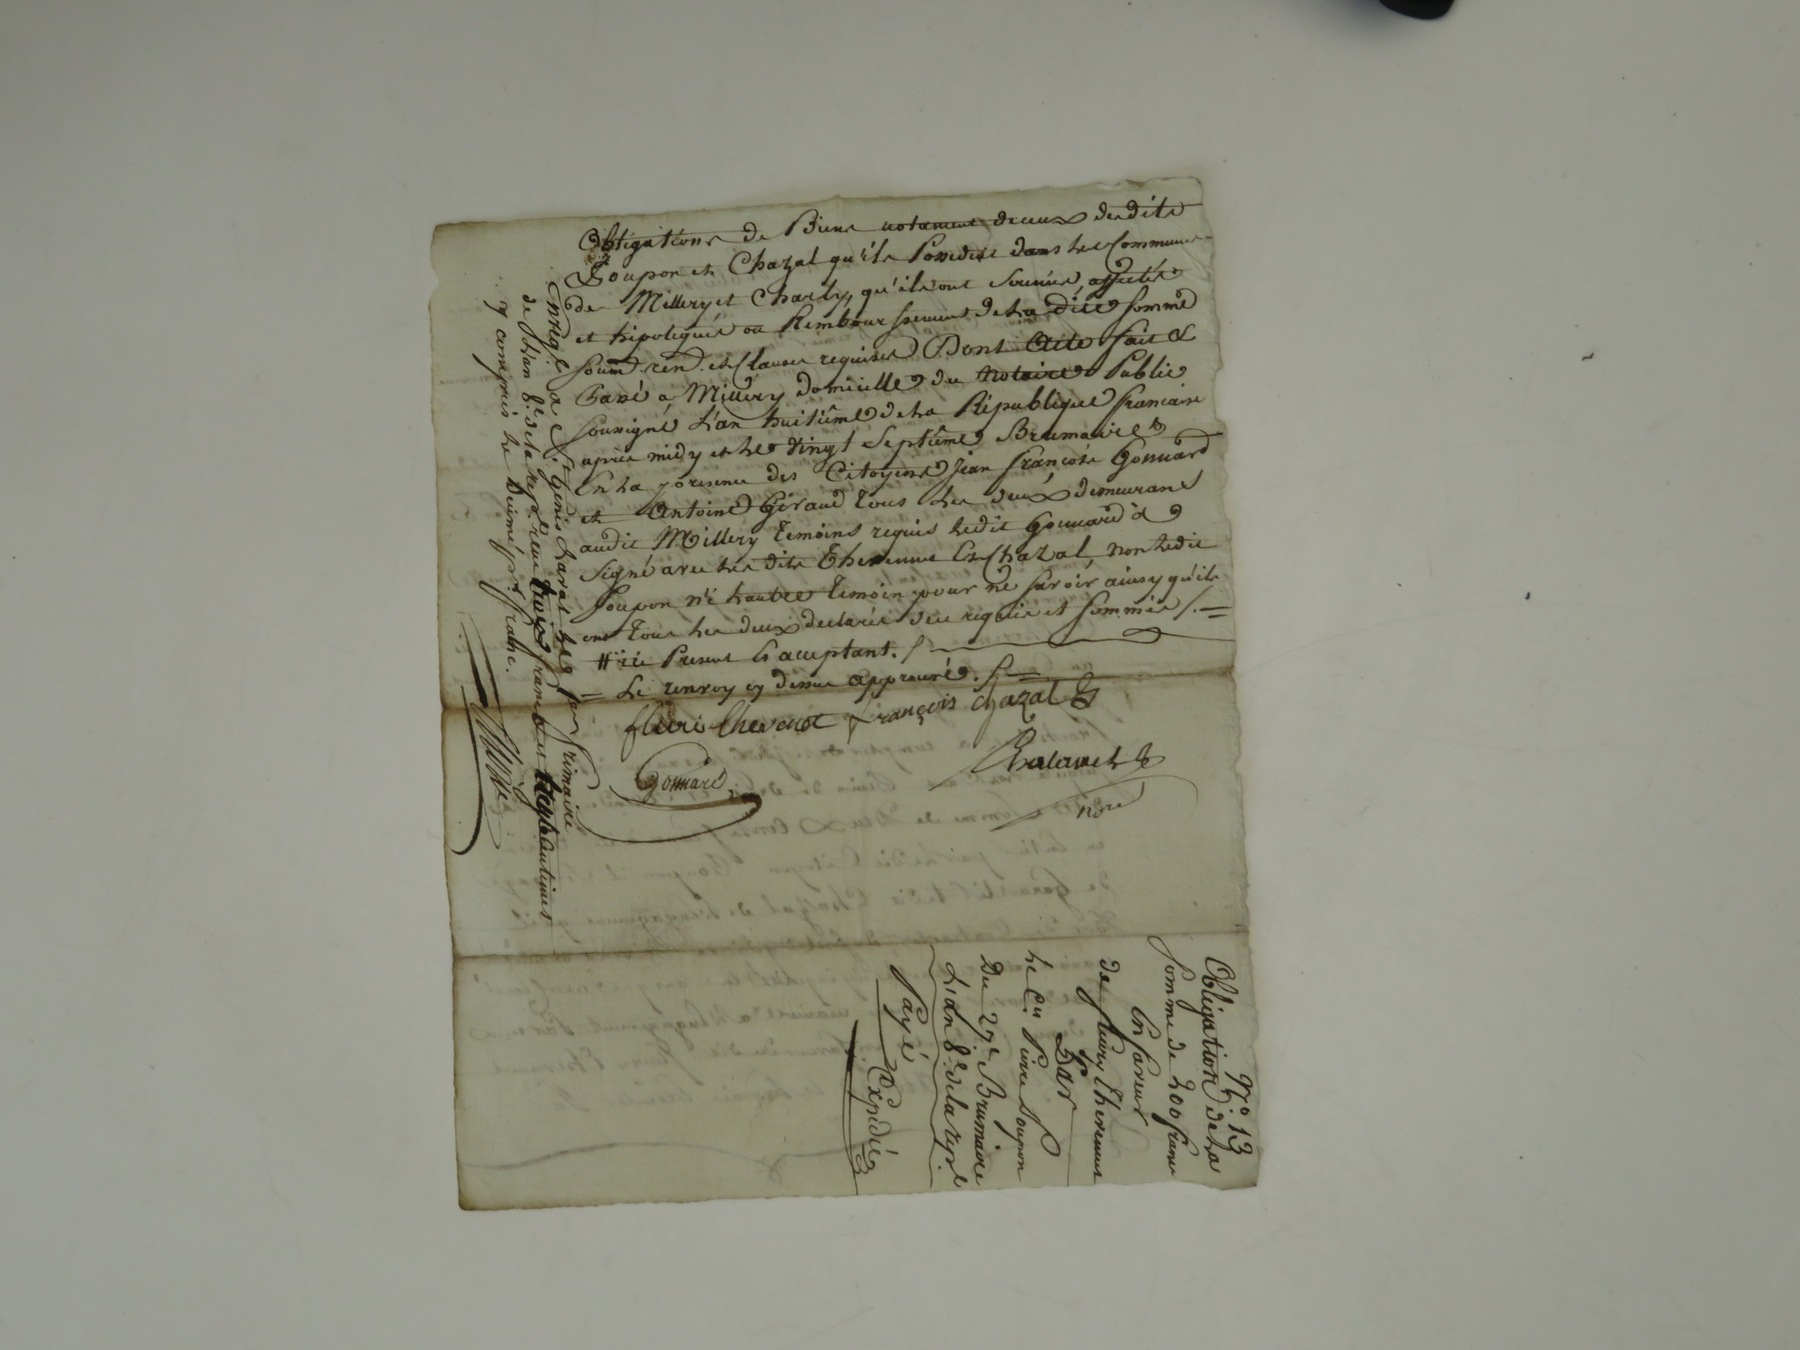 Obligations de Biens notament de ceux desdits
Soupon et Chazal qu'ils Possedent dans les Communes
de Millery et Charly, qu'ils ont soumis, affectés
et hipotequés au Remboursement de la dite somme
soum. ren. et Clauses requises Dont Acte fait &
Passé a Millery domicille du Notaire Public
soussigné L'an huitième de la République francaise
après midy et le vingt Septième Brumaire
En la présence des Citoyens Jean françois Gonnard
et Antoine Giraud tous les deux demeurans
audit Millery temoins requis ledit Gonnard a
signé avec les dits Thevenet et Chazal, non ledit
Soupon n'i l'autre temoin pour ne savoir ainsy qu'ils
ont tous les deux declarés de ce requis et sommés /. =
# ici Present et acceptant. /
= Le renvoy cy dessus approuvé. /. =
fleuri thevenet françois chazal
Gonnard
Chalavet
Nore
Enregt. a St. Genis Laval le
frimaire
de L'an 8e. de la repe. reçu deux francs
y compris le Decime pr. franc.
N° 13
Obligation de la
somme de 200 francs
En faveur
de fleury Thevenet
Par
le Cen Pierre Soupon
Du 27e Brumaire
L'an 8e. de la repe
Payé
Expédiée